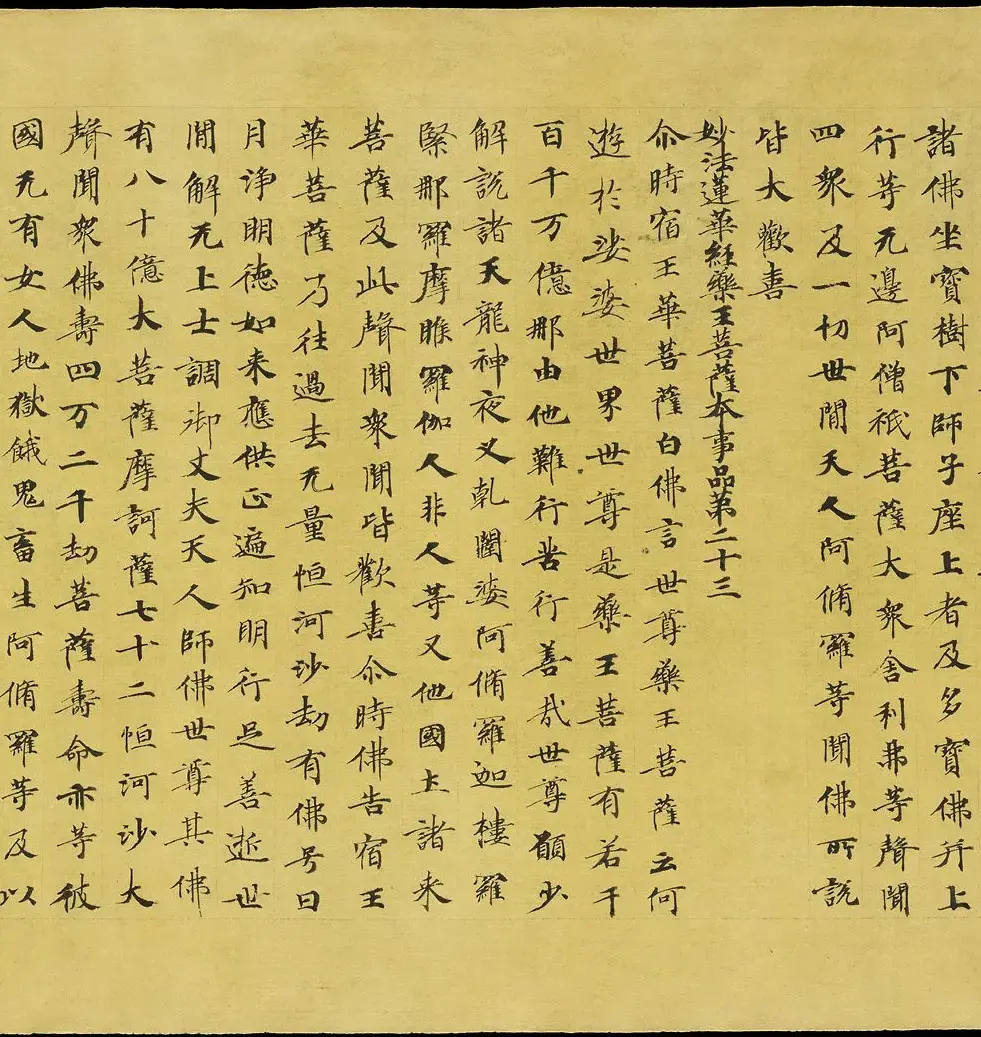 諸佛坐寶樹下師子座上者及多寶佛并上
行等无邊阿僧祇菩薩大衆舍利弗等聲聞
四衆及一切世間天人阿脩羅等聞佛所說
皆大歡喜
妙法蓮華經藥王菩薩本事品第二十三
尒時宿王華菩薩白佛言世尊藥王菩薩云何
遊於娑婆世界世尊是藥王菩薩有若干
百千万億那由他難行苦行善哉世尊願少
解說諸天龍神夜叉乹闥婆阿脩羅迦樓羅
緊那羅摩睺羅伽人非人等又他國土諸来
菩薩及此聲聞衆聞皆歡喜尒時佛告宿王
華菩薩乃往過去无量恒河沙劫有佛号曰
月淨明德如来應供正遍知明行足善逝世
間解无上士調御丈夫天人師佛世尊其佛
有八十億大菩薩摩訶薩七十二恒河沙大
聲聞衆佛壽四万二千劫菩薩壽命亦等彼
國无有女人地獄餓鬼畜生阿脩羅等及以